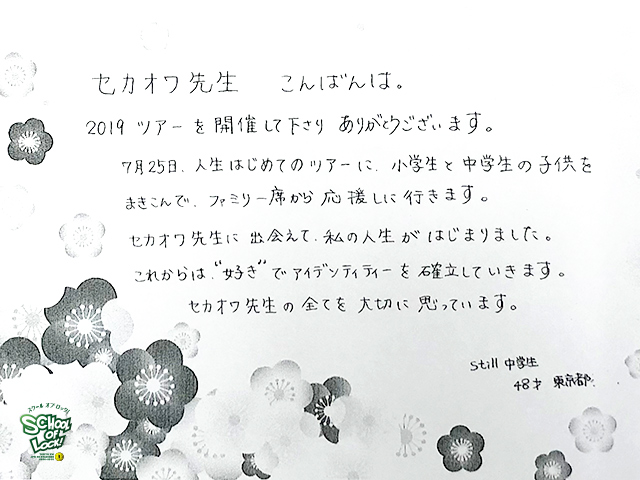 セカオワ先生 こんばんは。
2019 ツアーを開催して下さり ありがとうございます。
7月25日、人生はじめてのツアーに、小学生と中学生の子供を
まきこんで、ファミリー席から応援しに行きます。
セカオワ先生に出会えて、私の人生がはじまりました。
これからは、"好き"でアイデンティティーを確立していきます。
セカオワ先生の全てを大切に思っています。
still 中学生
48才 東京都
スクール オブ ロック!
SCHOOL OF LOCK!